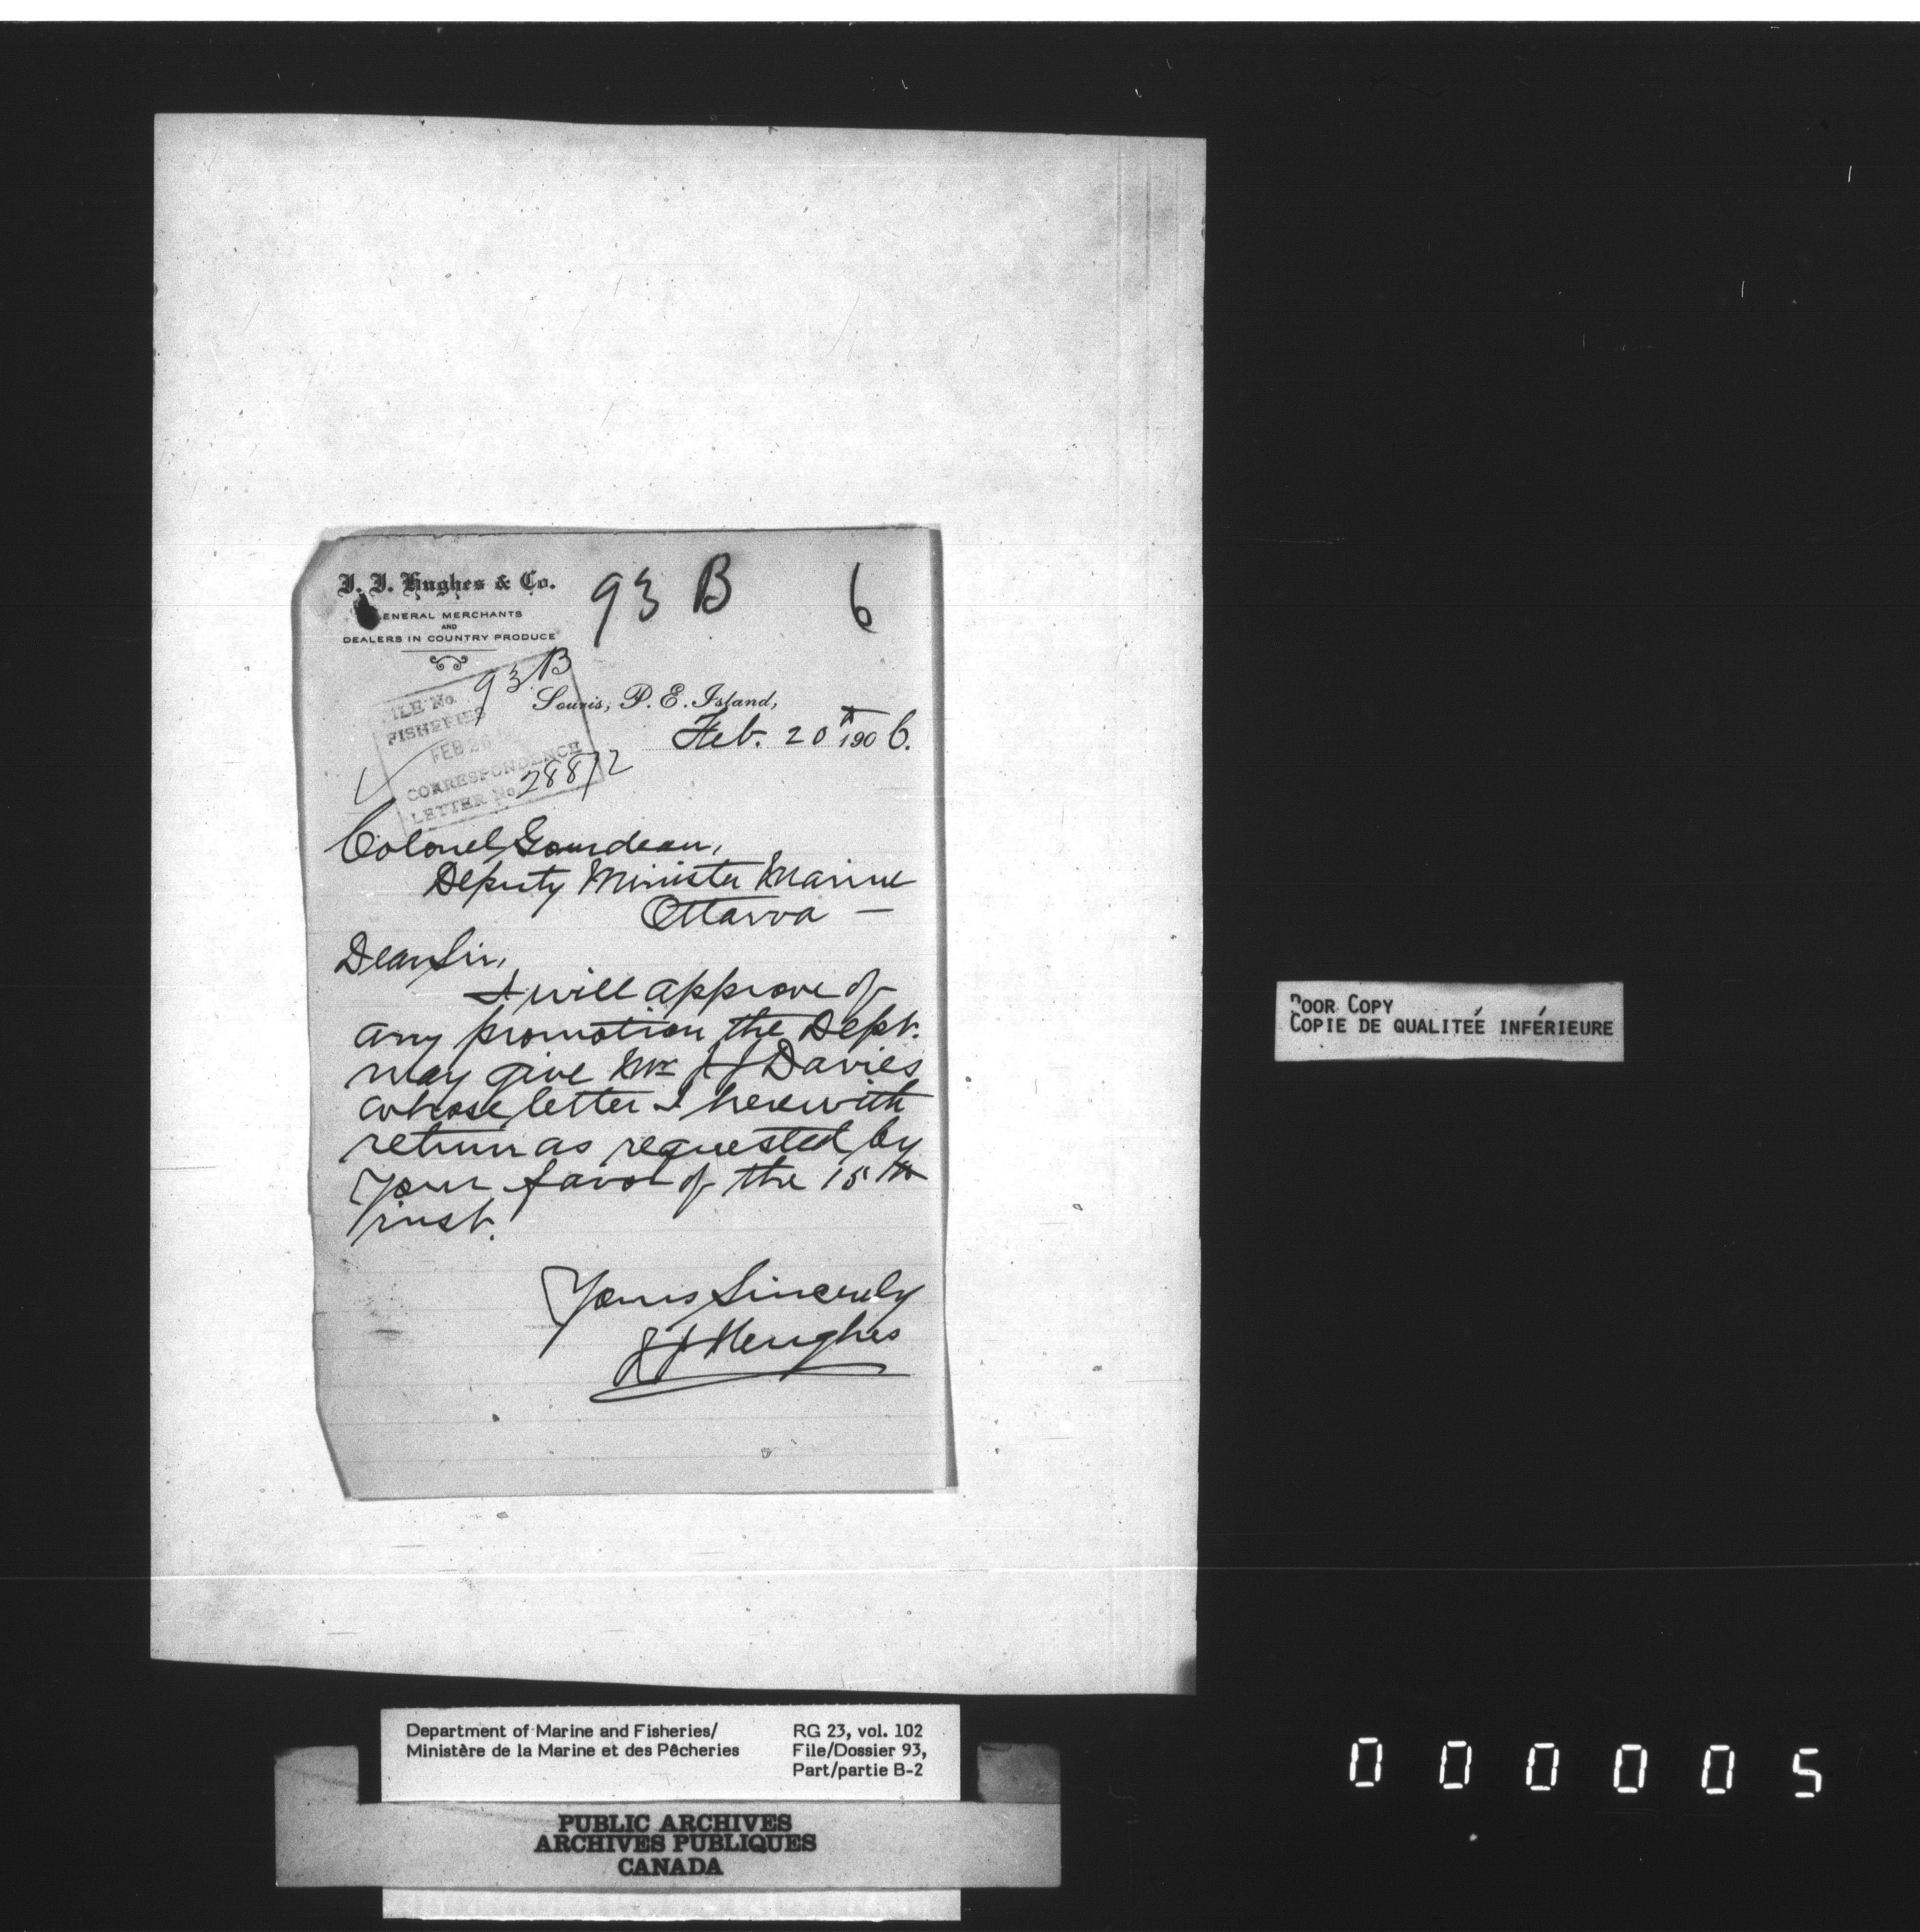 J. J. Hughes & Co.
GENERAL MERCHANTS
AND
DEALERS IN COUNTRY PRODUCE
93 B 6
FILE No. 93 B
FISHERIES
FEB 26
CORRESPONDENCE
LETTER No. 28872
Souris, P. E. Island,
Feb. 20th 1906.
Colonel Gourdeau,
Deputy Minister Marine
Ottawa —
Dear Sir,
I will approve of
any promotion the Dept.
may give Mr J J Davies
whose letter I herewith
return as requested by
your favor of the 15th
inst.
Yours Sincerely
J J Hughes
POOR COPY
COPIE DE QUALITEÉ INFÉRIEURE
Department of Marine and Fisheries/
Ministère de la Marine et des Pêcheries
RG 23, vol. 102
File/Dossier 93,
Part/partie B-2
PUBLIC ARCHIVES
ARCHIVES PUBLIQUES
CANADA
000005